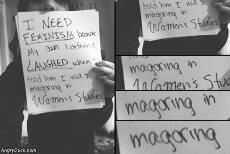 I NEED
FEMINISM because
My own boyfriend
LAUGHED when I
told him I was
magoring in
Women's Studies
told him I was
magoring in
Women's Studies
magoring in
magoring
AngryDuck.com